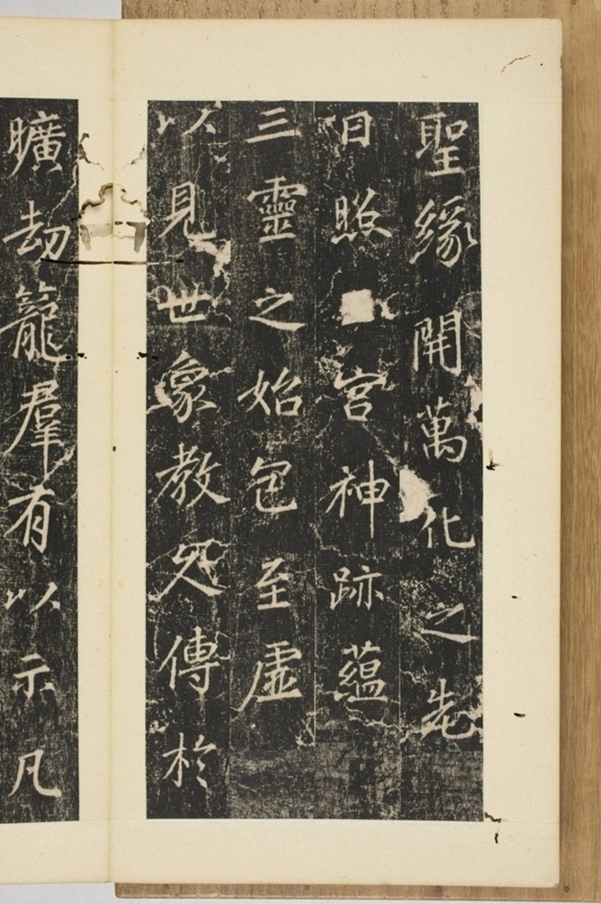 聖緣開萬化之先
日照宮神跡蘊
三靈之始包至虛
以見世象教久傳於
曠劫籠羣有以示凡